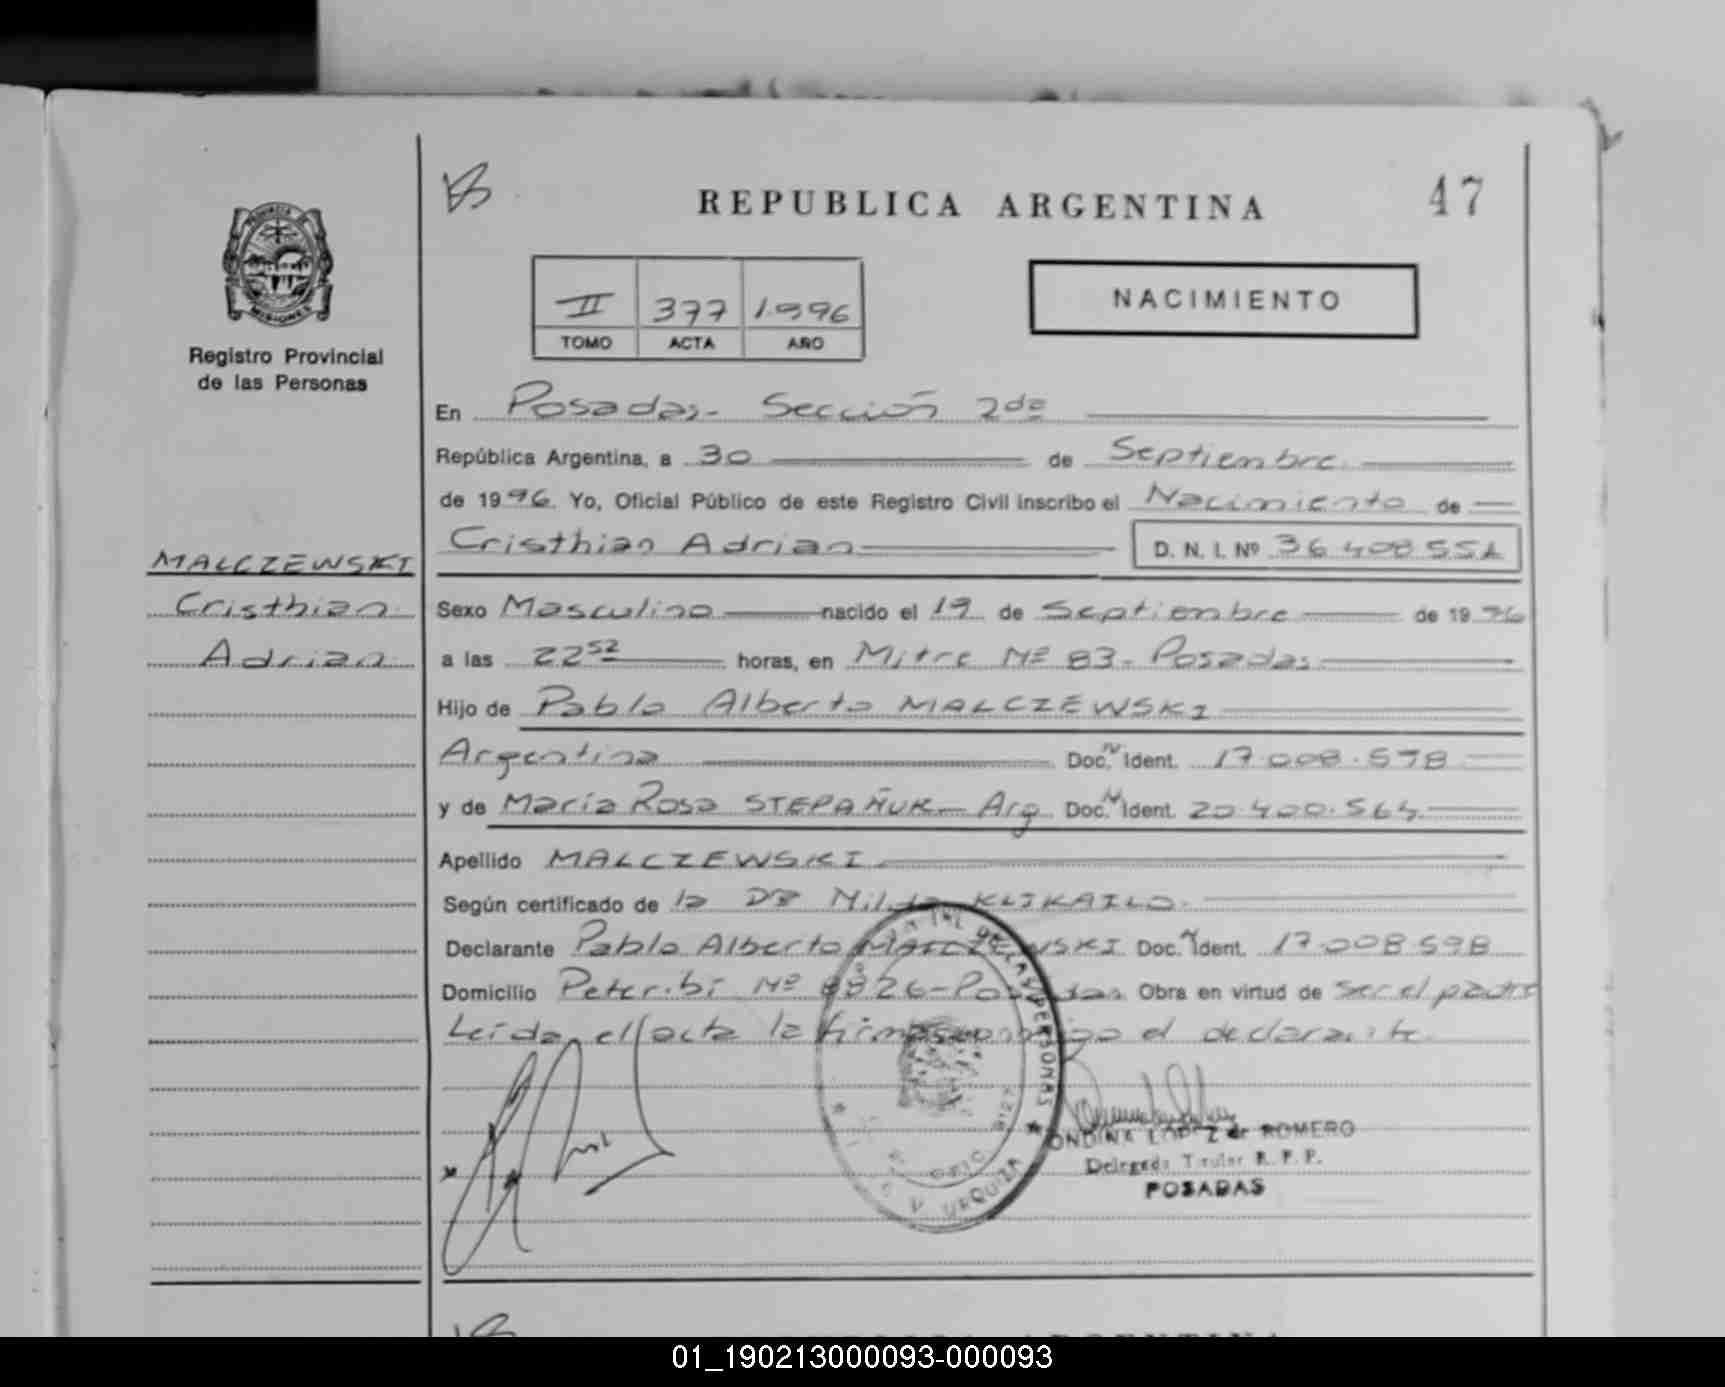 REPUBLICA ARGENTINA
47
PROVINCIA
MISIONES
Registro Provincial
de las Personas
II 377 1.996
TOMO ACTA AÑO
NACIMIENTO
En Posadas - Sección 2da
República Argentina, a 30 de Septiembre
de 1996. Yo, Oficial Público de este Registro Civil inscribo el Nacimiento de
Cristhian Adrian D. N. I. Nº 36.408.551
MALCZEWSKI
Cristhian
Adrian
Sexo Masculino nacido el 19 de Septiembre de 1996
a las 22 52 horas, en Mitre Nº 83 - Posadas
Hijo de Pablo Alberto MALCZEWSKI
Argentina Doc. Ident. 17.008.598
y de María Rosa STEPAÑUK - Arg Doc. Ident. 20.400.564
Apellido MALCZEWSKI
Según certificado de la DRA KLIKAILO
Declarante Pablo Alberto MALCZEWSKI Doc. Ident. 17.008.598
Domicilio Peteribí Nº 8826 - Posadas Obra en virtud de ser el padre
Leida el acta la firma conmigo el declarante
DE LAS PERSONAS
URQUIZA
ONDINA LOPEZ de ROMERO
Delegada Titular R. P. P.
POSADAS
01_190213000093-000093